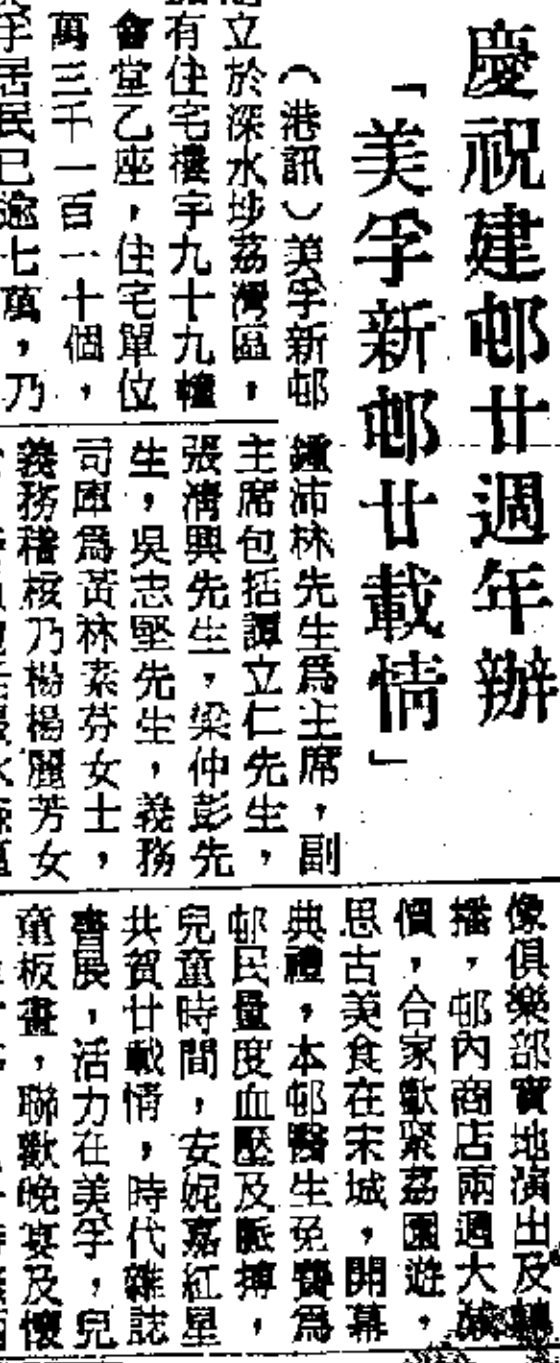 慶祝建邨廿週年辦
「美孚新邨廿載情」
（港訊）美孚新邨
立於深水埗荔灣區，
有住宅樓宇九十九幢
會堂乙座，住宅單位
萬三千一百一十個，
孚居民已逾七萬，乃
鍾沛林先生為主席，副
主席包括譚立仁先生，
張淸興先生，梁仲彭先
生，吳志堅先生，義務
司庫為黃林素芬女士，
義務稽核乃楊楊麗芳女
像俱樂部實地演出及轉
播，邨內商店兩週大減
價，合家歡聚荔園遊，
思古美食在宋城，開幕
典禮，本邨醫生免費為
邨民量度血壓及脈搏，
兒童時間，安妮嘉紅星
共賀廿載情，時代雜誌
書展，活力在美孚，兒
童板畫，聯歡晚宴及懷